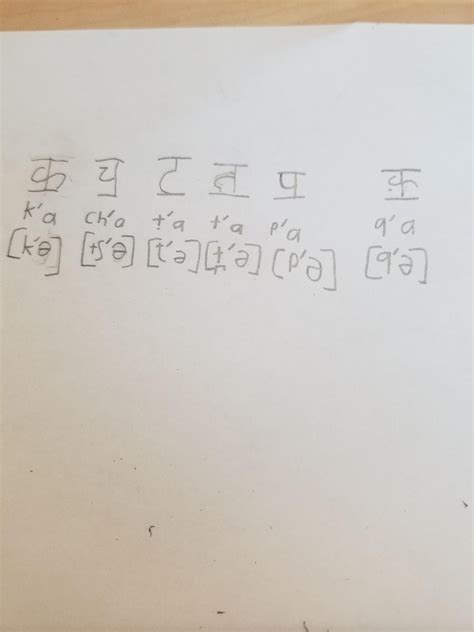 क़ च ट त प क़
k'a ch'a ṭ'a t'a p'a q'a
[k'ə] [tʃ'ə] [ʈ'ə] [t̪'ə] [p'ə] [q'ə]